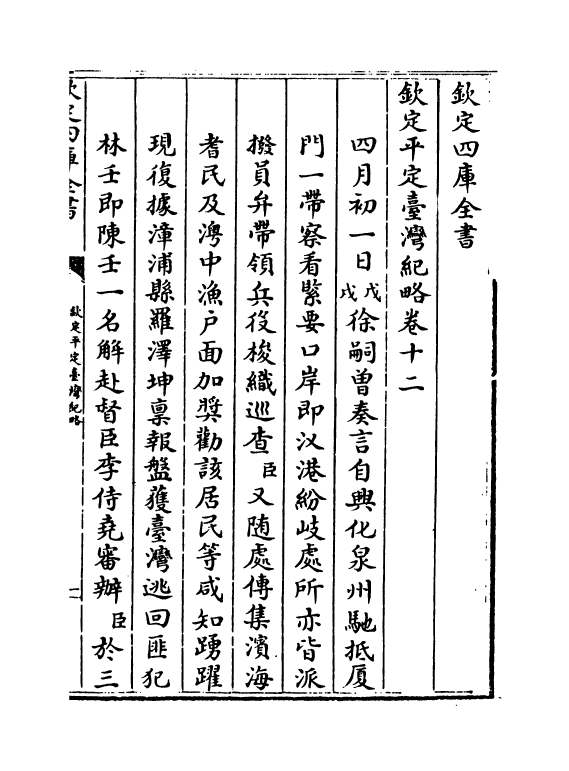 欽定四庫全書
欽定平定臺灣紀略卷十二
四月初一日戊戌徐嗣曾奏言自興化泉州馳抵厦
門一帶察看緊要口岸即汊港紛岐處所亦皆派
撥員弁帶領兵役梭織巡查臣又随處傳集濱海
耆民及灣中漁户面加奬勸該居民等咸知踴躍
現復據漳浦縣羅澤坤稟報盤獲臺灣逃回匪犯
林壬即陳壬一名解赴督臣李侍堯審辦臣於三
欽定四庫全書
欽定平定臺灣紀略
一